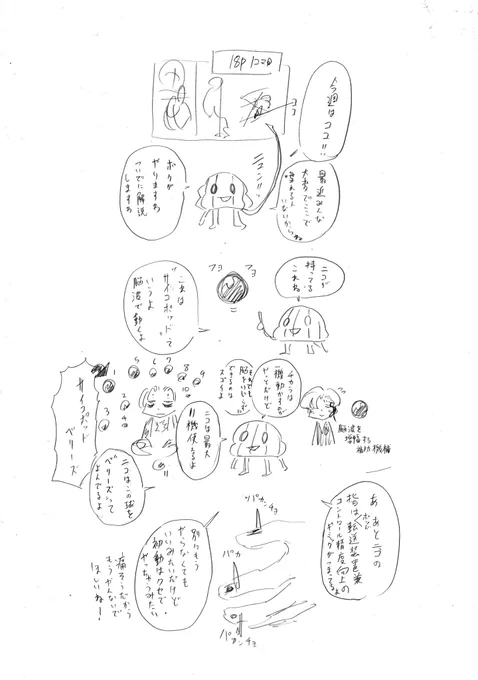 18P 1コマ目
ココ
今週はココ!!
最近みんな
大事でここで
いないからね
ニュン!!
ボクが
やりますわ
ついでに解説
しますわ
ニコが
持ってる
これね
フヨ
フヨ
これは
"サイコポッド"って
いうよ
脳波で動くよ
チカラは
機動かすのが
やっとだけど
脳を
スゴイよ
脳波を
増幅する
補助機械
ニコは最大
11機使えるよ
1
2
3
4
5
6
7
8
9
10
11
サイコポッド
ベリーズ
ニコはこの球を
ベリーズって
よんでるよ
あ あとニコの
指は転送装置兼
ポッド
コントロール精度向上の
ギミックがつまってるよ
ツパカンチョ
パカ
パカンチョ
別にもう
やらなくても
いいみたいだけど
初動はクセで
やっちゃうみたい
痛そうだから
もうやんないで
ほしいね!